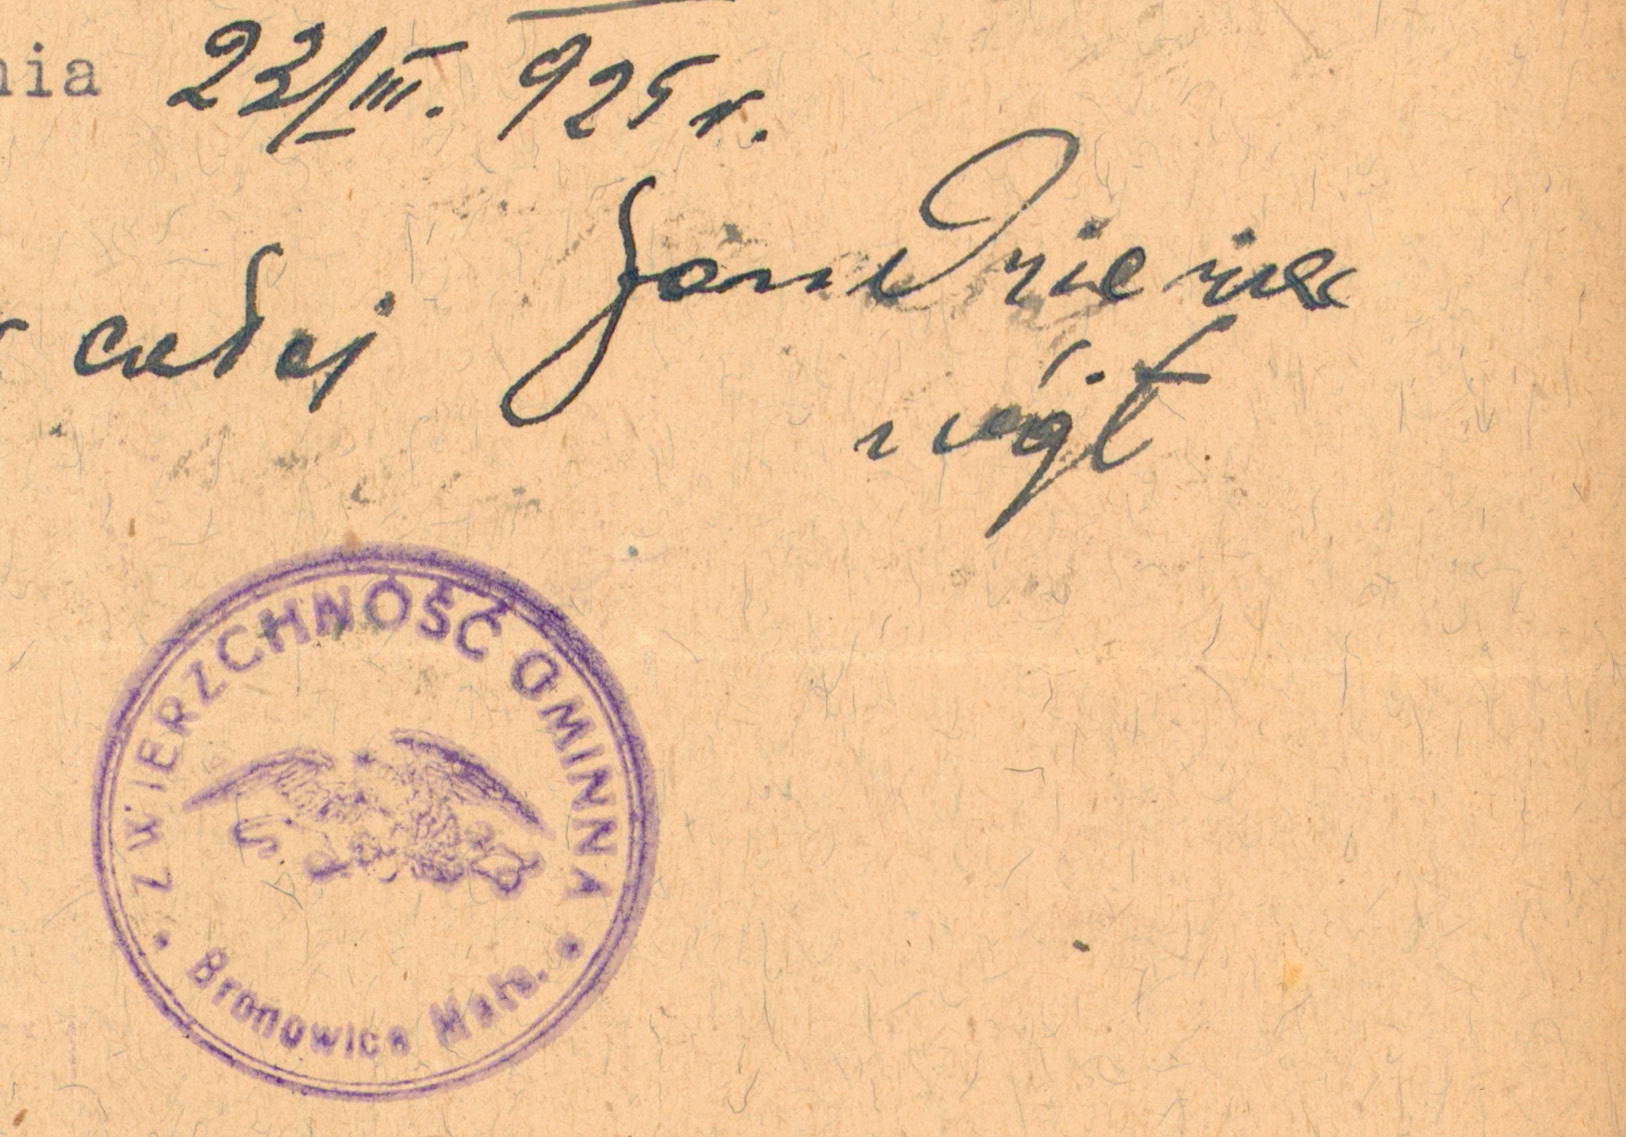 nia 23/III. 925 r.
całej
Jan Dzie
wójt
ZWIERZCHNOŚĆ GMINNA
Bronowice Małe.